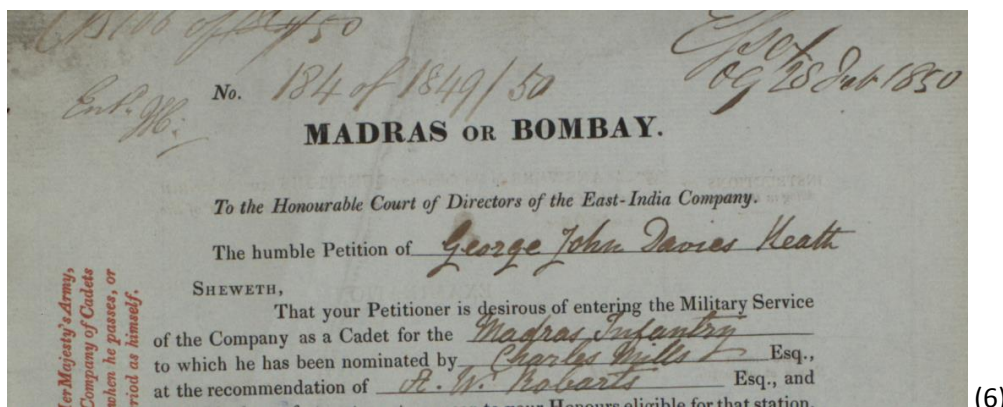 of 50
No. 184 of 1849/50
28 Feb 1850
MADRAS OR BOMBAY.
To the Honourable Court of Directors of the East-India Company.
The humble Petition of George John Davies Heath
SHEWETH,
That your Petitioner is desirous of entering the Military Service
of the Company as a Cadet for the Madras Infantry
to which he has been nominated by Charles Mills Esq.,
at the recommendation of A. W. Robarts Esq., and
your Honours eligible for that station.
Her Majesty's Army,
Company of Cadets
when he passes, or
period as himself.
(6)